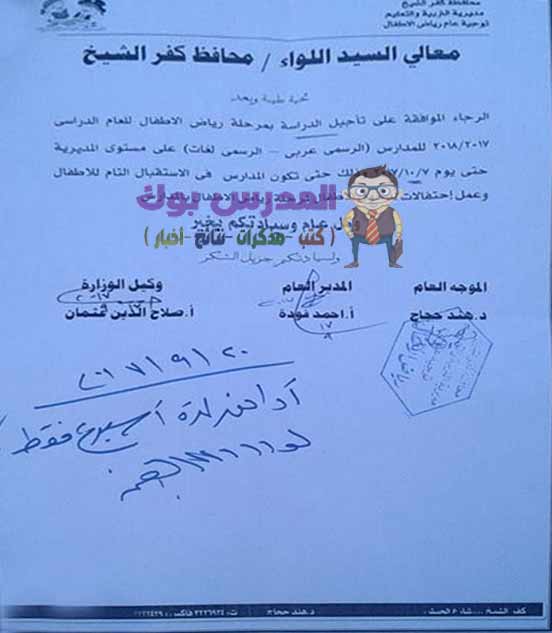 محافظة كفر الشيخ
مديرية التربية والتعليم
توجية عام رياض الاطفال
معالي السيد اللواء / محافظ كفر الشيخ
تحية طيبة وبعد
الرجاء الموافقة على تأجيل الدراسة بمرحلة رياض الاطفال للعام الدراسى
٢٠١٨/٢٠١٧ للمدارس (الرسمى عربى - الرسمى لغات) على مستوى المديرية
حتى يوم ٧/١٠/ وذلك حتى تكون المدارس فى الاستقبال التام للأطفال
وعمل إحتفالات لمرحلة رياض الاطفال بالمدارس
المدرس بوك
وكل عام وسيادتكم بخير
( كتب - مذكرات - نتائج - أخبار )
ولسيادتكم جزيل الشكر
الموجه العام المدير العام وكيل الوزارة
د. هند حجاج أ. احمد فودة أ. صلاح الدين عثمان
٢٠١٧/٩/٢٠
أوافق لمدة أسبوع فقط
كفر الشيخ د. هند حجاج ت: ٣٢٢٦٩٢٤ فاكس: